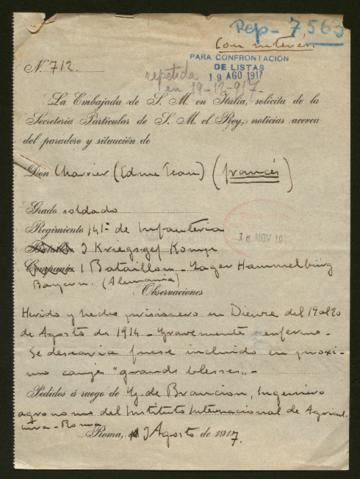 Rep- 7,563
Con interés
Nº 712.
PARA CONFRONTACIÓN
DE LISTAS
19 AGO 1917
repetida
en 19-12-917.
La Embajada de S. M. en Italia, solicita de la
Secretaría Particular de S. M. el Rey, noticias acerca
del paradero y situación de
Don Charrier (Edme Jean) (francés)
Grado soldado
Regimiento 141º de Infantería
Batallón 3 Kriegsgef Komp.
Compañía 1 Bataillon - Lager Hammelburg
Bayern. (Alemania)
Observaciones
Herido y hecho prisionero en Dieuze del 19 al 20
de Agosto de 1914 - Gravemente enfermo.
Se desearía fuese incluido en próxi-
mo canje "grands blessés".-
Pedidos á ruego de de Brancion, Ingeniero
agronomo del Instituto Internacional de Agricul-
tura - Roma
Roma, 3 Agosto de 1917.